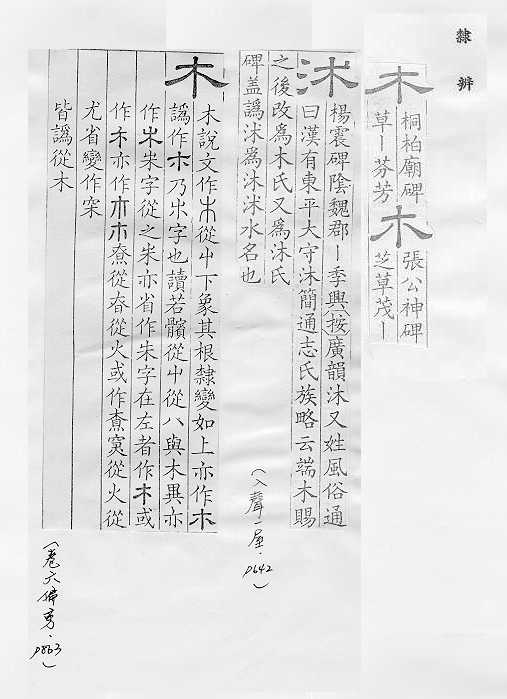 隸辨
木 桐柏廟碑
草丨芬芳
木 張公神碑
芝草茂丨
沐 楊震碑陰魏郡丨季興按廣韻沐又姓風俗通
曰漢有東平大守沐簡通志氏族略云端木賜
之後改為木氏又為沐氏
碑蓋譌沐為沭沭水名也
(入聲一屋·P642)
木 木說文作木從屮下象其根隸變如上亦作木
譌作木乃𣎳字也讀若髕從屮從八與木異亦
作木朱字從之朱亦省作朱字在左者作木或
作木亦作木木尞從昚從火或作尞寞從火從
尤省變作宲
皆譌從木
(卷六偏旁·P863)